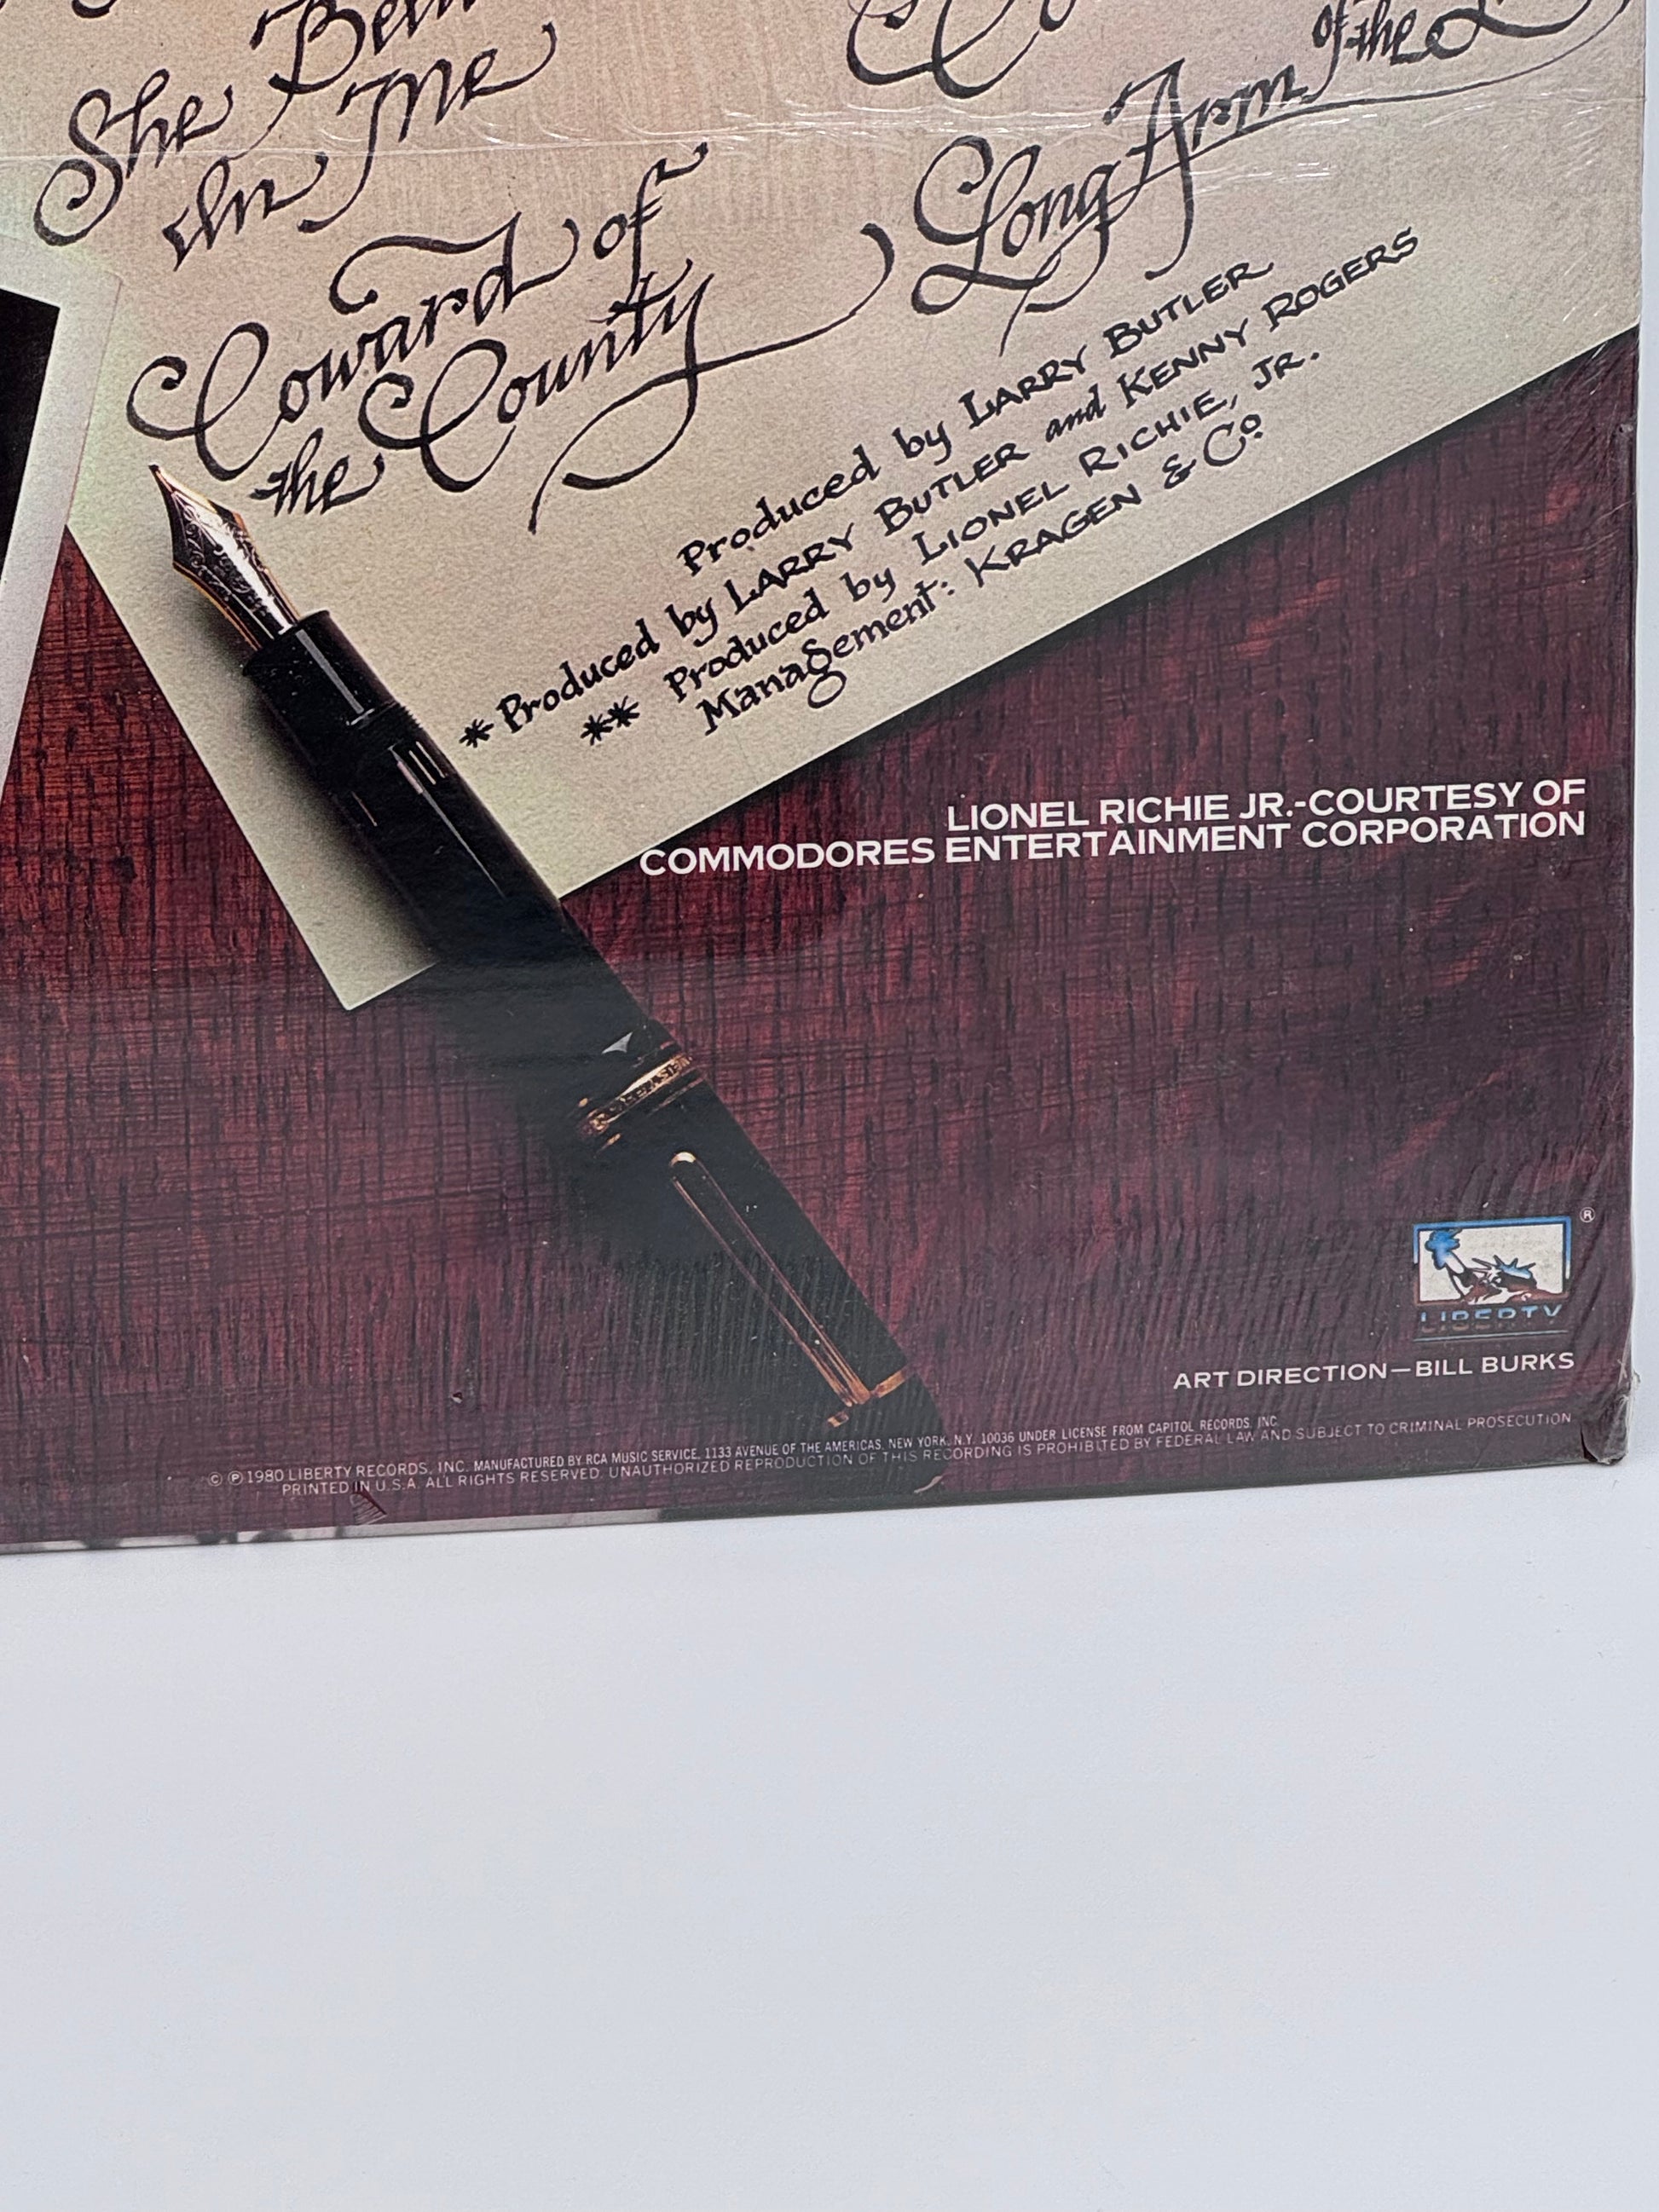 She
in Me
Coward of
the County
of the
Long Arm
Produced by LARRY BUTLER
* Produced by LARRY BUTLER and KENNY ROGERS
** Produced by LIONEL RICHIE, JR.
Management: KRAGEN & Co
LIONEL RICHIE JR.-COURTESY OF
COMMODORES ENTERTAINMENT CORPORATION
®
LIBERTY
ART DIRECTION—BILL BURKS
© ℗ 1980 LIBERTY RECORDS, INC. MANUFACTURED BY RCA MUSIC SERVICE, 1133 AVENUE OF THE AMERICAS, NEW YORK, N.Y. 10036 UNDER LICENSE FROM CAPITOL RECORDS, INC.
PRINTED IN U.S.A. ALL RIGHTS RESERVED. UNAUTHORIZED REPRODUCTION OF THIS RECORDING IS PROHIBITED BY FEDERAL LAW AND SUBJECT TO CRIMINAL PROSECUTION